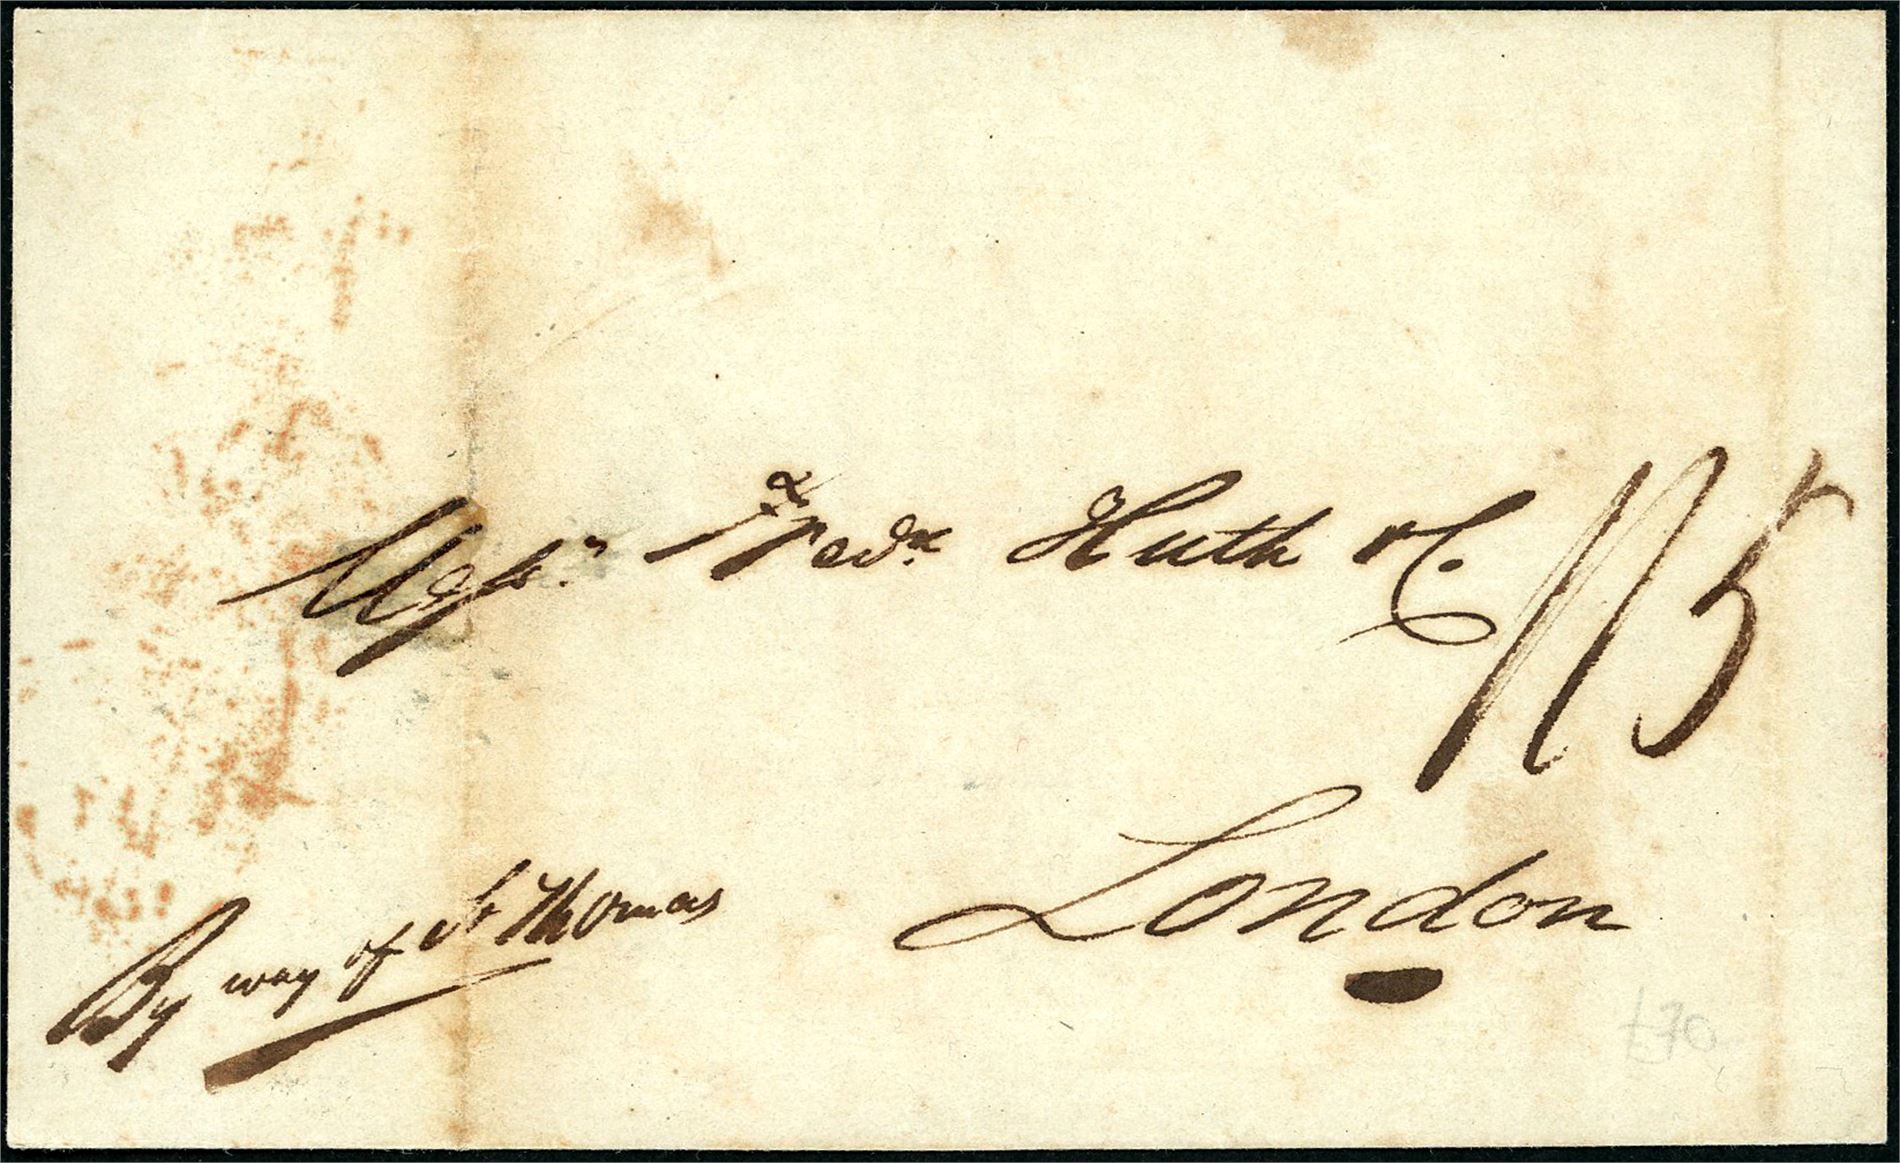 Messrs. Fredk. Huth & C.
1/5
London
By way of St Thomas
£70